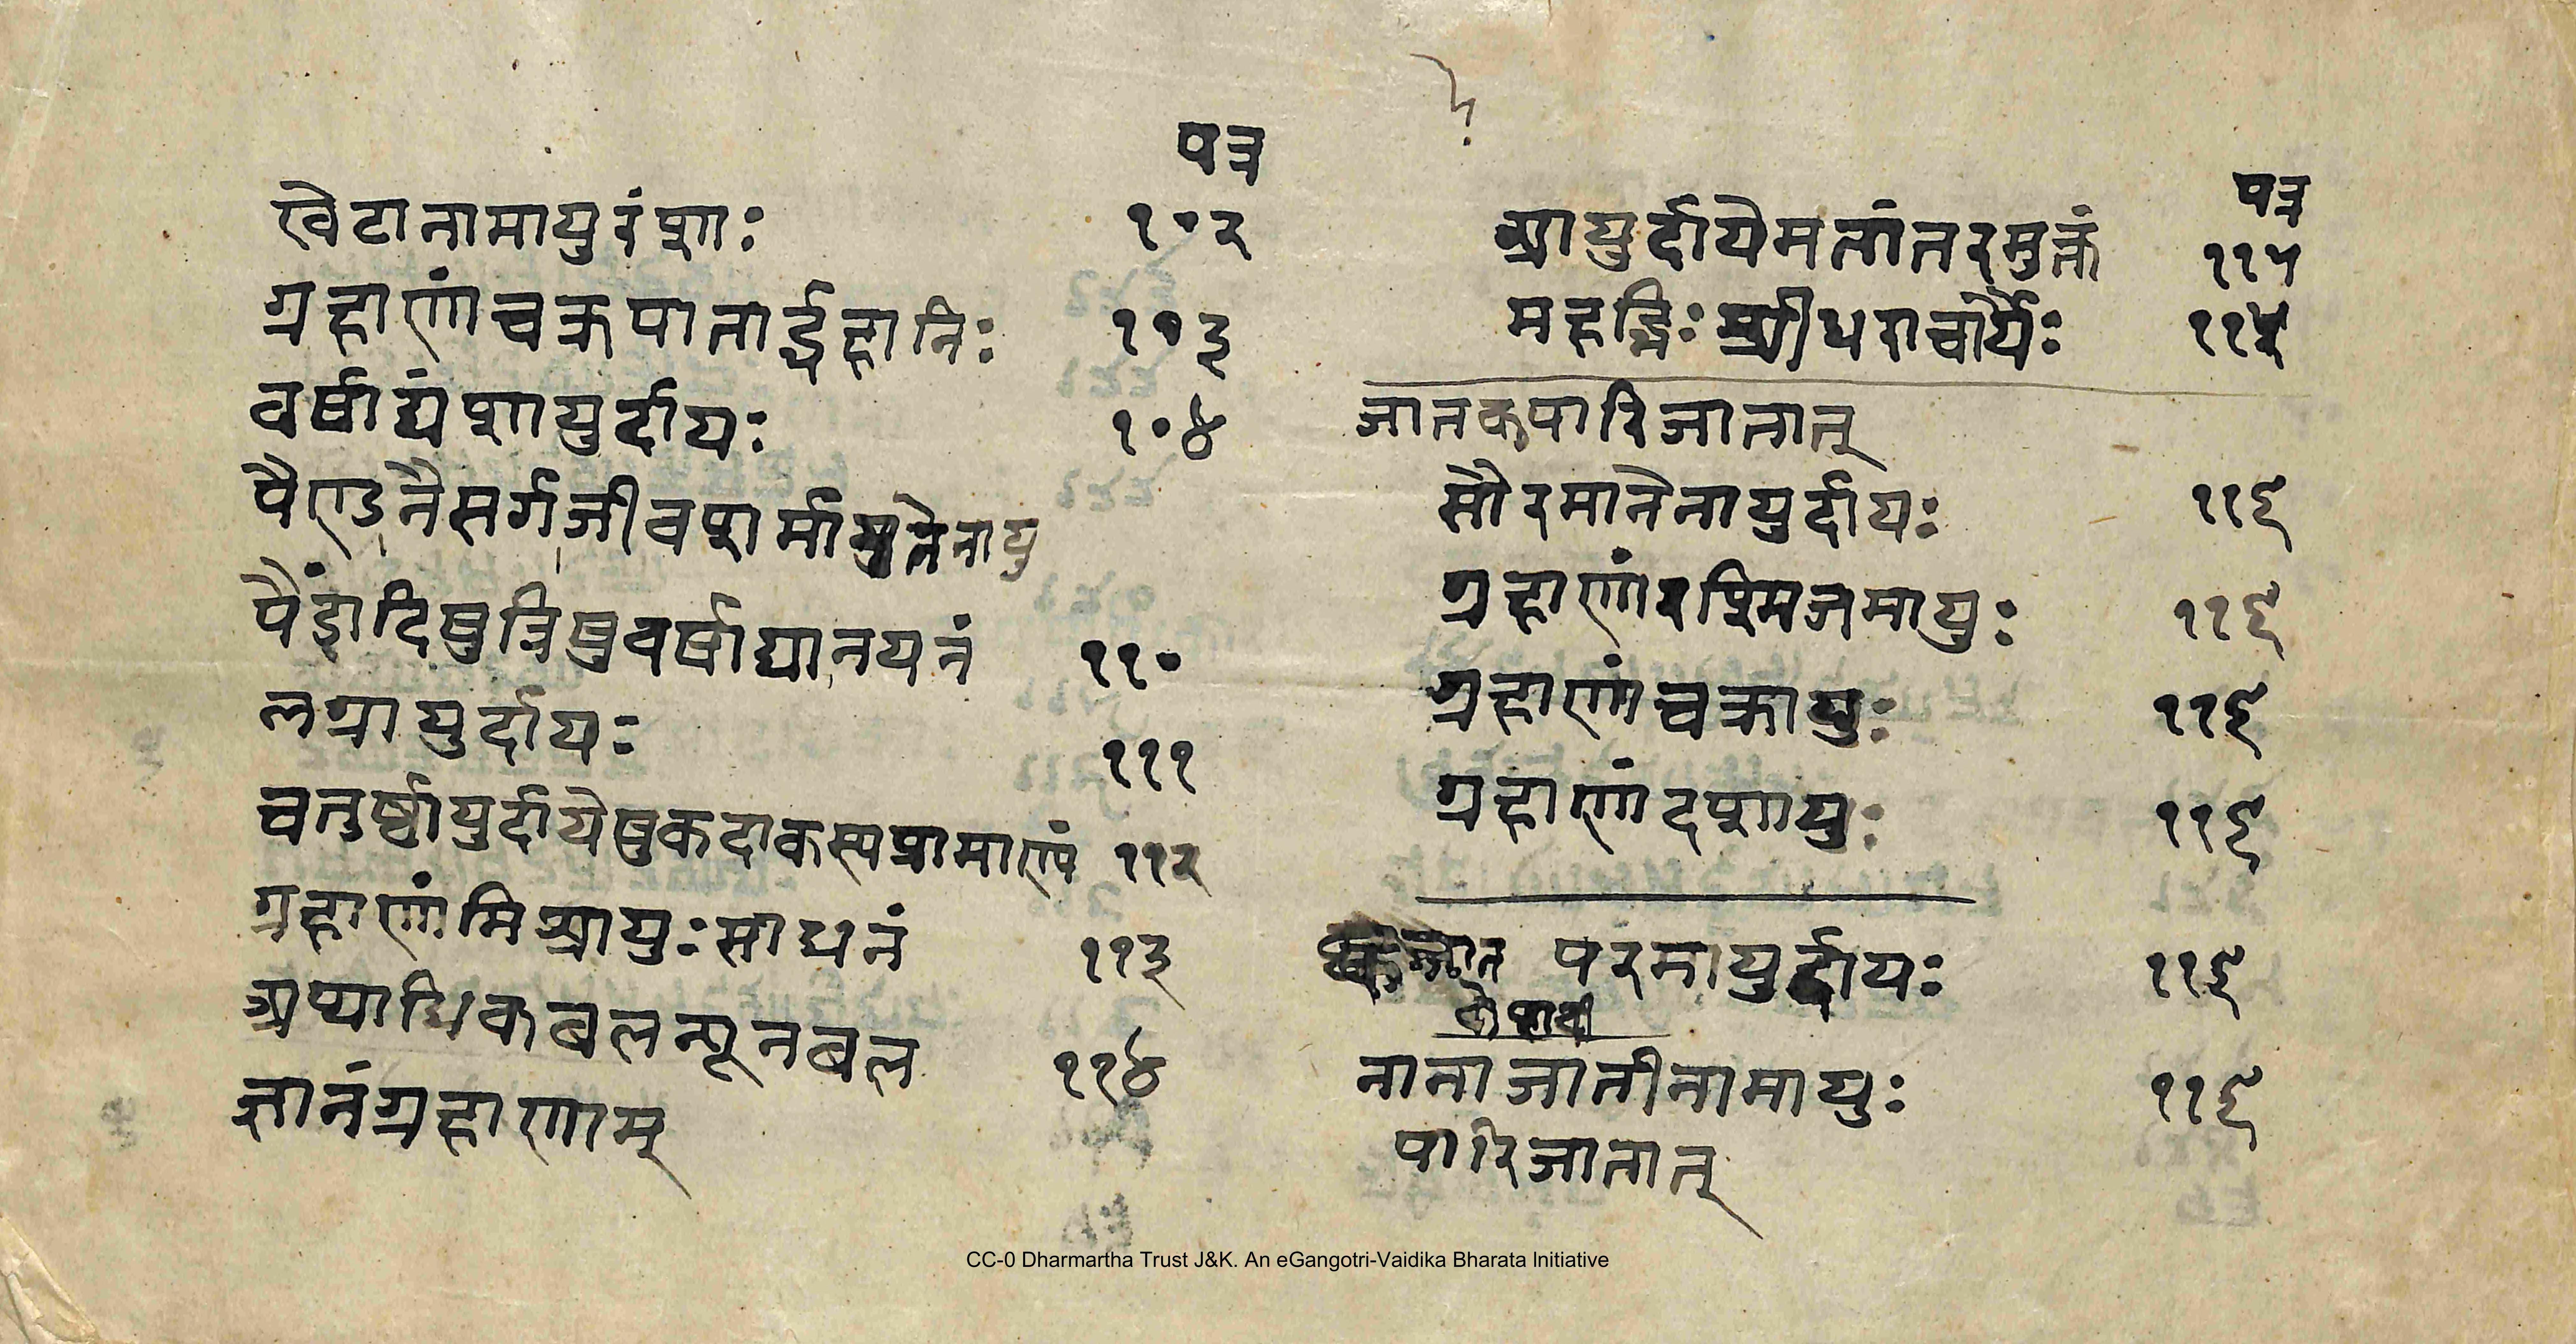 पत्र
खेटानामायुरंशाः १०२
ग्रहाणांचक्रपातार्द्धहानिः १०३
वर्षाद्यंशायुर्दायः १०४
पैण्डनैसर्गजीवशर्मायुतेनायु
पैंडादिषुत्रिषुवर्षाद्यानयनं ११०
लग्नायुर्दायः १११
चतुर्ष्वायुर्दायेषुकदाकस्यप्रामाण्यं ११२
ग्रहाणांमिश्रायुःसाधनं ११३
अप्याधिकबलन्यूनबल ११४
ज्ञानंग्रहाणाम्
पत्र
आयुर्दायेमतांतरमुक्तं ११५
महद्भिः श्रीधराचार्यैः ११५
जातकपारिजातात्
सौरमानेनायुर्दायः ११६
ग्रहाणांरश्मिजमायुः ११६
ग्रहाणांचक्रायुः ११६
ग्रहाणांदशायुः ११६
परमायुर्दायः ११६
नानाजातीनामायुः ११६
पारिजातात्
CC-0 Dharmartha Trust J&K. An eGangotri-Vaidika Bharata Initiative